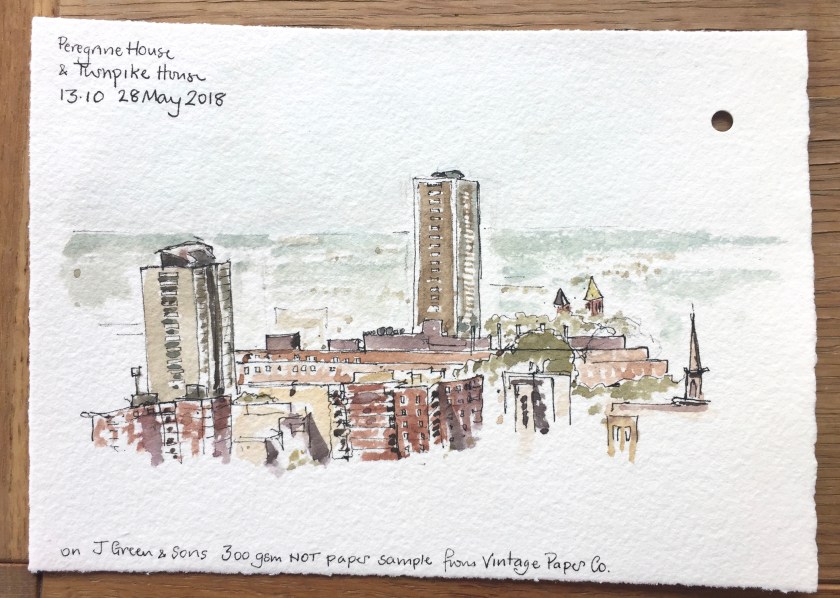 Peregrine House
& Turnpike House
13.10 28 May 2018
on J Green & Sons 300 gsm NOT paper sample from Vintage Paper Co.